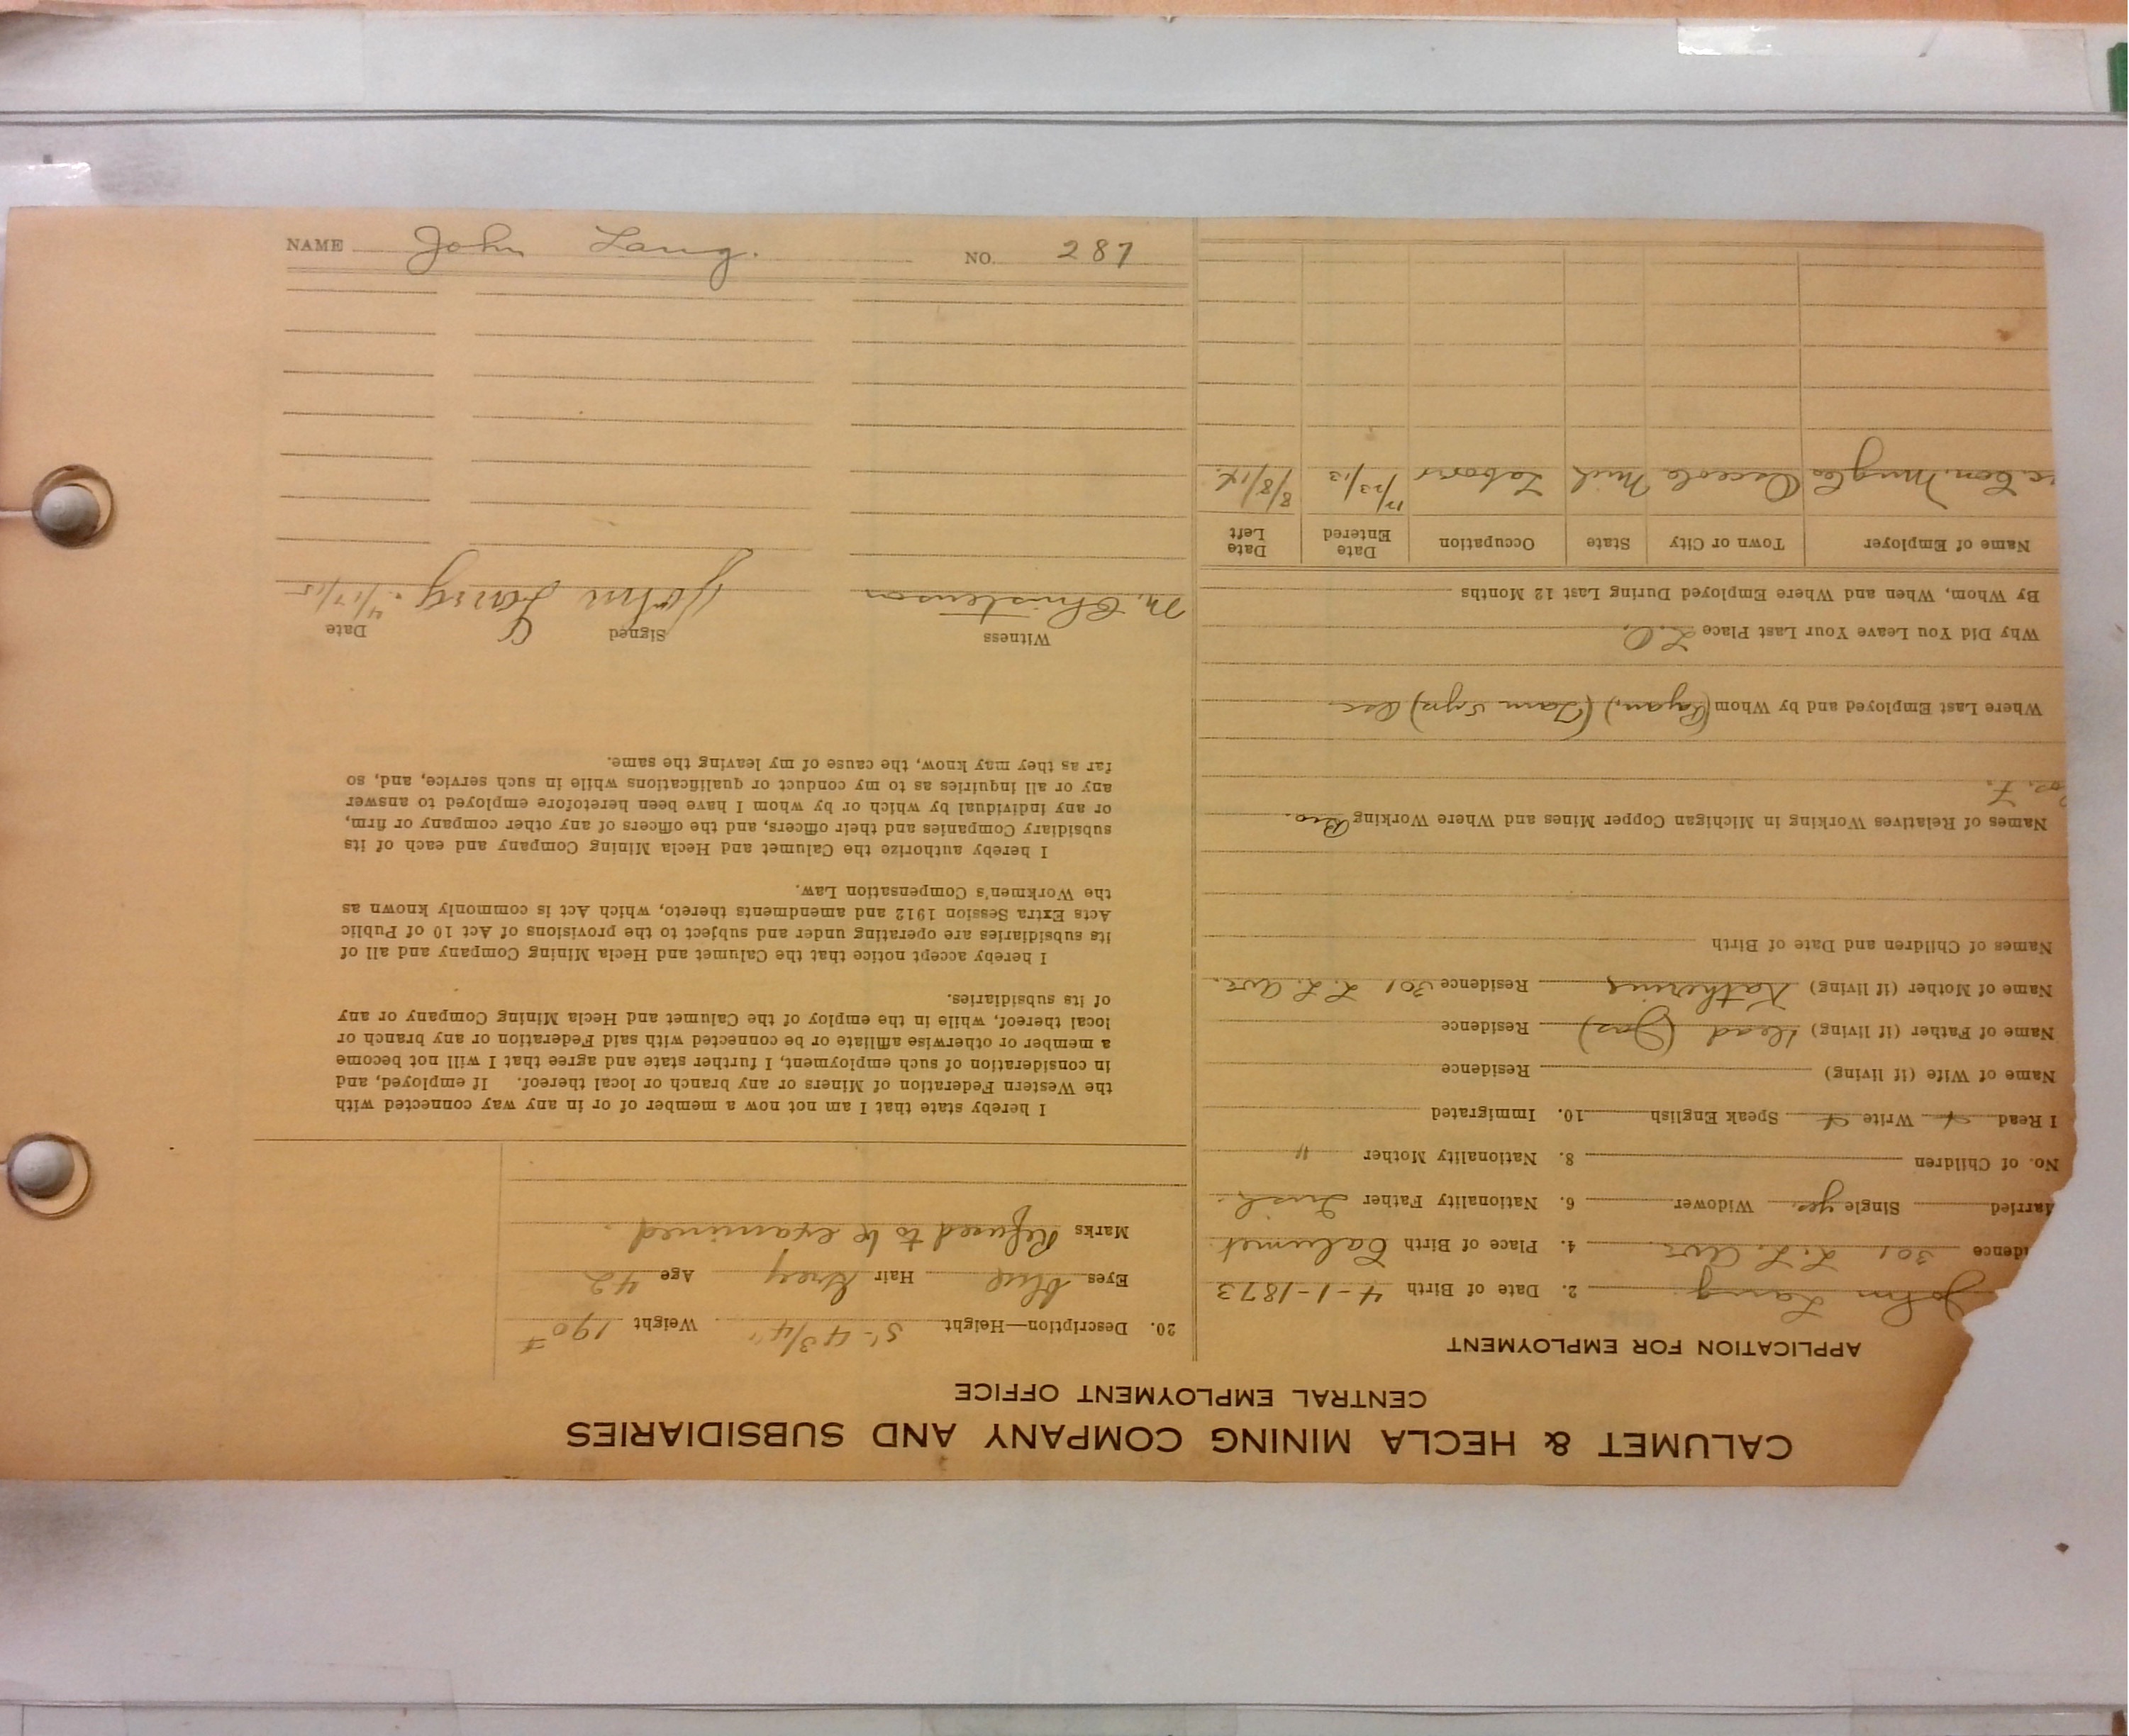 CALUMET & HECLA MINING COMPANY AND SUBSIDIARIES
CENTRAL EMPLOYMENT OFFICE
APPLICATION FOR EMPLOYMENT
John Lang. 2. Date of Birth 4-1-1873
idence 301 L. L. Ave. 4. Place of Birth Calumet
arried Single yes Widower 6. Nationality Father Irish
No. of Children 8. Nationality Mother "
I Read Write Speak English 10. Immigrated
Name of Wife (if living) Residence
Name of Father (if living) Dead (Jas) Residence
Name of Mother (if living) Katherine Residence 301 L. L. Ave.
Names of Children and Date of Birth
Names of Relatives Working in Michigan Copper Mines and Where Working Bro.
Where Last Employed and by Whom
Why Did You Leave Your Last Place L.O.
By Whom, When and Where Employed During Last 12 Months
Name of Employer Town or City State Occupation Date Entered Date Left
Con. Mng Co Osceola Mich Laborer 12/23/13 8/8/14
20. Description—Height 5'-4 3/4" Weight 190#
Eyes blue Hair Grey Age 42
Marks Refused to be examined.
I hereby state that I am not now a member of or in any way connected with
the Western Federation of Miners or any branch or local thereof. If employed, and
in consideration of such employment, I further state and agree that I will not become
a member or otherwise affiliate or be connected with said Federation or any branch or
local thereof, while in the employ of the Calumet and Hecla Mining Company or any
of its subsidiaries.
I hereby accept notice that the Calumet and Hecla Mining Company and all of
its subsidiaries are operating under and subject to the provisions of Act 10 of Public
Acts Extra Session 1912 and amendments thereto, which Act is commonly known as
the Workmen's Compensation Law.
I hereby authorize the Calumet and Hecla Mining Company and each of its
subsidiary Companies and their officers, and the officers of any other company or firm,
or any individual by which or by whom I have been heretofore employed to answer
any or all inquiries as to my conduct or qualifications while in such service, and, so
far as they may know, the cause of my leaving the same.
Witness Signed Date
M. Christenson John Lang. 4/17/15
NAME John Lang. NO. 287